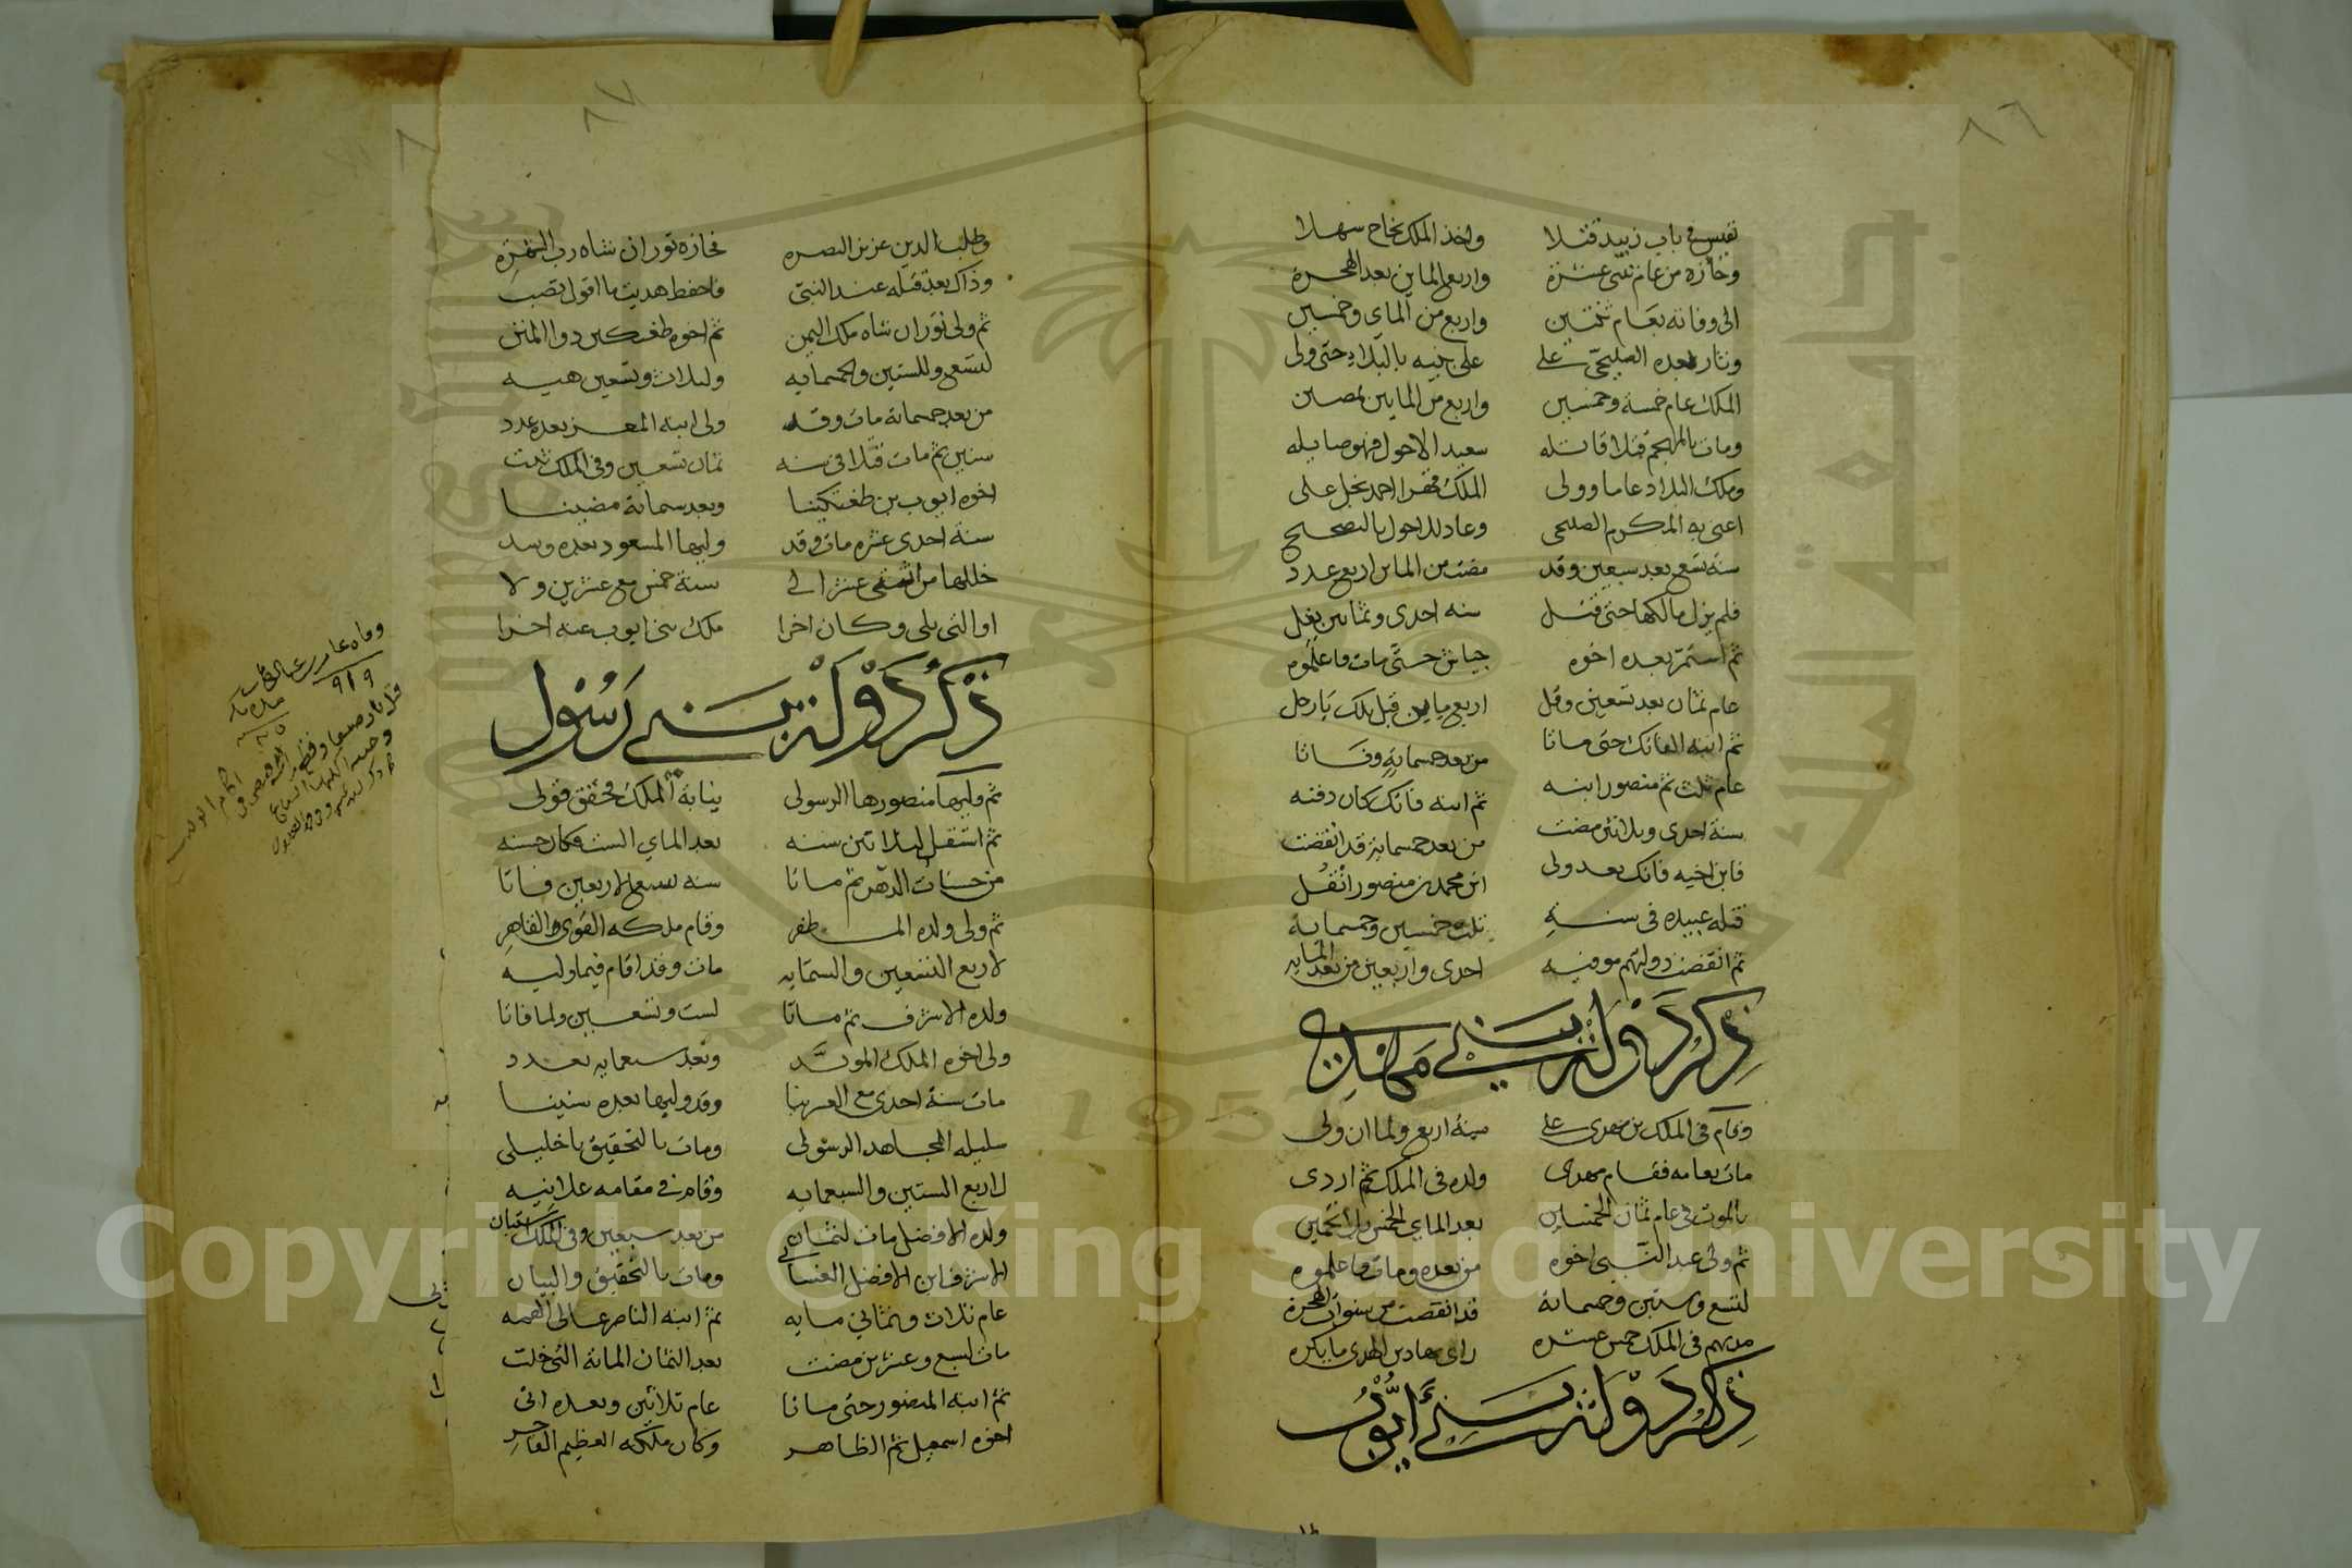 ٨٦
نفيس في باب زبيد قتلا واخذ الملك نجاح سهلا
وحازه من عام ثنتى عشرة واربع المايين بعد الهجرة
الى وفاته بعام ثنتين واربع من الماي وخمسين
وثار بعده الصليحي على على بنيه بالبلاد حتى ولى
الملك عام خمسة وخمسين واربع من المايين
ومات بالمهجم قتلا قاتله سعيد الاحول فهو صايله
وملك البلاد عاما وولى الملك قهرا احمد نجل على
اعنى به المكرم الصليحى وعاد للاحول بالتصحيح
سنة تسع بعد سبعين وقد مضت من الماين اربع عدد
فلم يزل مالكها حتى قتل سنه احدى وثمانين
ثم استمر بعده اخوه جياش حتى مات فاعلموه
عام ثمان بعد تسعين وقل اربع مايين قبل تلك يا رجل
ثم ابنه الفاتك حتى ماتا من بعد خمسماية وفاتا
عام ثلث ثم منصور ابنه ثم ابنه فاتك كان دفنه
سنة احدى وثلاثين مضت من بعد خمسماية قد انقضت
فابن اخيه فاتك بعد ولى ابن محمد بن منصور انقل
قتله عبيده في سنة ثلث خمسين وخمسماية
ثم انقضت دولتهم موفيه احدى واربعين من بعد المايه
ذكر دولة بني مهدي
وقام في الملك بن مهدي على سنة اربع ولما ان ولى
مات بعامه فقام مهدى ولده في الملك ثم اردى
بالموت في عام ثمان الخمسين بعد الماي الخمس
ثم ولى عبد النبى اخوه من بعده ومات فاعلموه
لتسع وستين وخمسمائة قد انقضت من سنوات الهجرة
مدتهم في الملك خمس عشره
ذكر دولة بني أيوب
٨٧
وطلب الدين عزيز النصره فحازه توران شاه رب
وذاك بعد قتله عبد النبى فاحفظ هديت ما اقول تصب
ثم ولى توران شاه ملك اليمن ثم اخوه طغتكين ذو المنن
لتسع والستين والخمسمايه ولثلاث وتسعين هيه
من بعد خمسمائة مات وقد ولى ابنه المعز بعده عدد
سنين ثم مات قتلا في سنه ثمان تسعين وفي الملك
اخوه ايوب بن طغتكينا وبعد ستمائة مضينا
سنة احدى عشره مات وقد وليها المسعود بعده
خللها من اثنتى عشر الى سنة خمس مع عشرين ولا
او التى تلى وكان اخرا ملك بنى ايوب عنه اخرا
ذكر دولة بني رسول
ثم وليها منصورها الرسولى نيابة الملك فحقق قولى
ثم استقل لثلاثين سنه بعد الماي الست فكان حسنه
من حسنات الدهر ثم ماتا سنه سبع الاربعين فاتا
ثم ولى ولده المظفر وقام ملكه القوى والقاهر
لاربع التسعين والستمايه مات وقد اقام فيما وليه
ولده الاشرف ثم ماتا لست وتسعين ولما فاتا
ولى اخوه الملك المويد وبعد سبعمايه تعدد
مات سنة احدى مع العشرينا وقد وليها بعده سنينا
سليله المجاهد الرسولى ومات بالتحقيق يا خليلى
لاربع الستين والسبعمايه وقام في مقامه علانيه
ولده الافضل مات لثمان من بعد سبعين وفي الملك
الاشرف ابن الافضل الغسانى ومات بالتحقيق والبيان
عام ثلاث وثماني مايه ثم ابنه الناصر عالى الهمه
مات لسبع وعشرين مضت بعد الثمان المائة التى خلت
ثم ابنه المنصور حتى ماتا عام ثلاثين وبعده اتى
اخوه اسمعيل ثم الظاهر وكان ملكه العظيم القاهر
٩١٩
Copyright © King Saud University
جامعة الملك سعود
King Saud University
1957